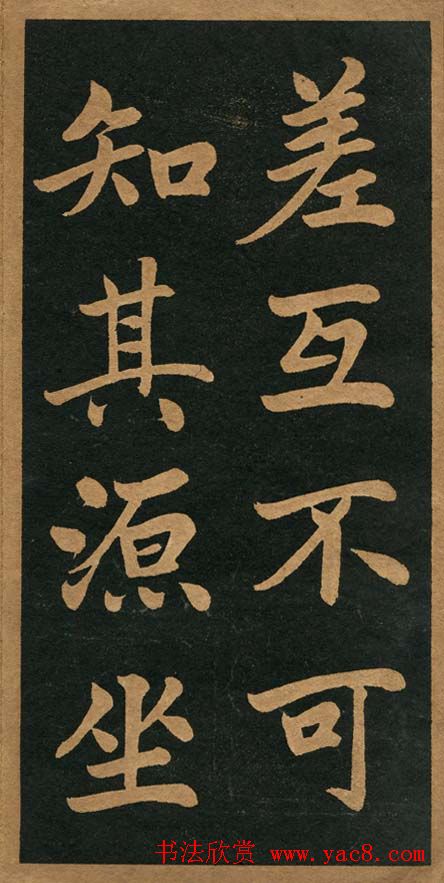 差互不可
知其源坐
书法欣赏 www.yac8.com